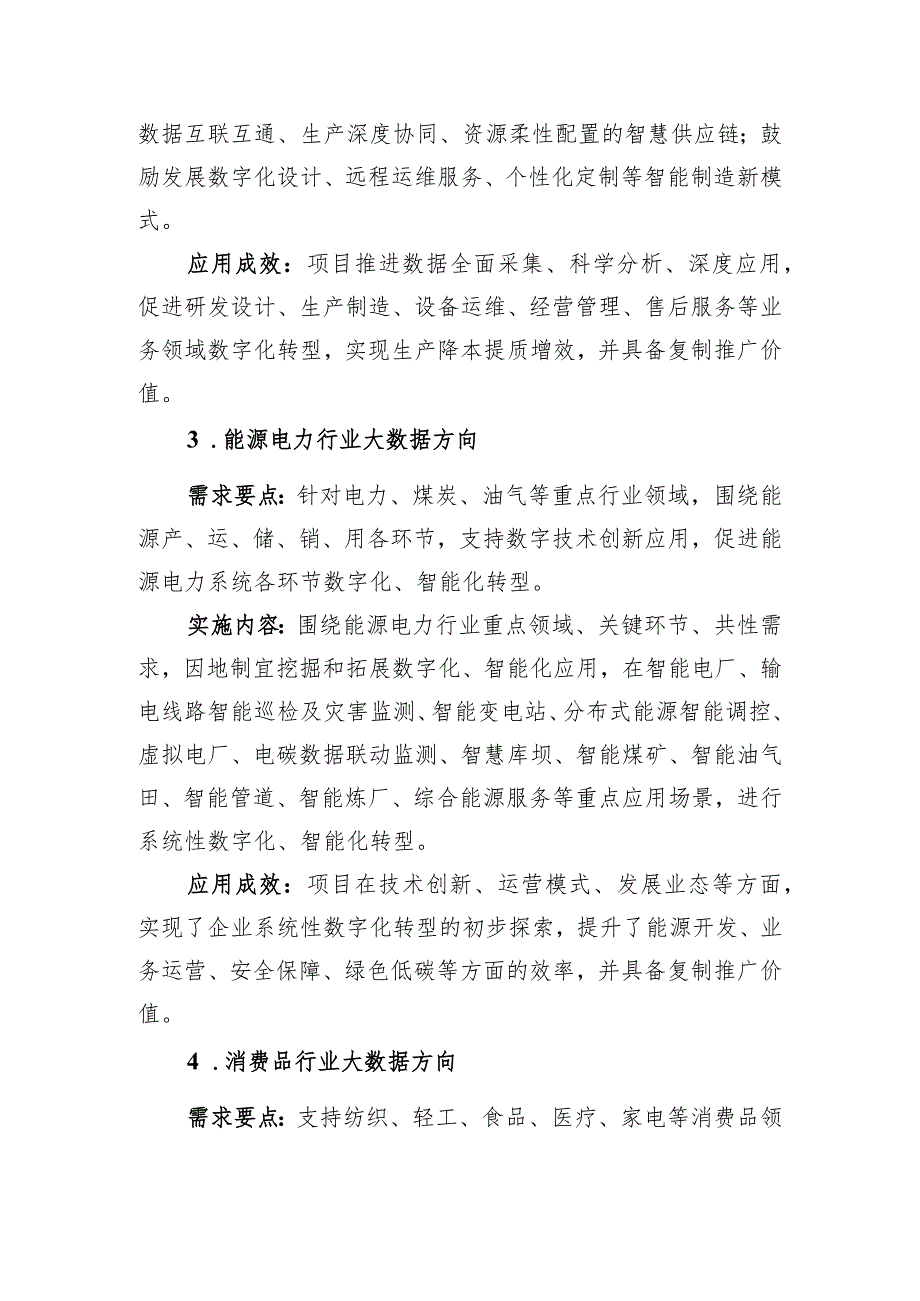 数据互联互通、生产深度协同、资源柔性配置的智慧供应链；鼓
励发展数字化设计、远程运维服务、个性化定制等智能制造新模
式。
应用成效：项目推进数据全面采集、科学分析、深度应用，
促进研发设计、生产制造、设备运维、经营管理、售后服务等业
务领域数字化转型，实现生产降本提质增效，并具备复制推广价
值。
3 .能源电力行业大数据方向
需求要点：针对电力、煤炭、油气等重点行业领域，围绕能
源产、运、储、销、用各环节，支持数字技术创新应用，促进能
源电力系统各环节数字化、智能化转型。
实施内容：围绕能源电力行业重点领域、关键环节、共性需
求，因地制宜挖掘和拓展数字化、智能化应用，在智能电厂、输
电线路智能巡检及灾害监测、智能变电站、分布式能源智能调控、
虚拟电厂、电碳数据联动监测、智慧库坝、智能煤矿、智能油气
田、智能管道、智能炼厂、综合能源服务等重点应用场景，进行
系统性数字化、智能化转型。
应用成效：项目在技术创新、运营模式、发展业态等方面，
实现了企业系统性数字化转型的初步探索，提升了能源开发、业
务运营、安全保障、绿色低碳等方面的效率，并具备复制推广价
值。
4 .消费品行业大数据方向
需求要点：支持纺织、轻工、食品、医疗、家电等消费品领